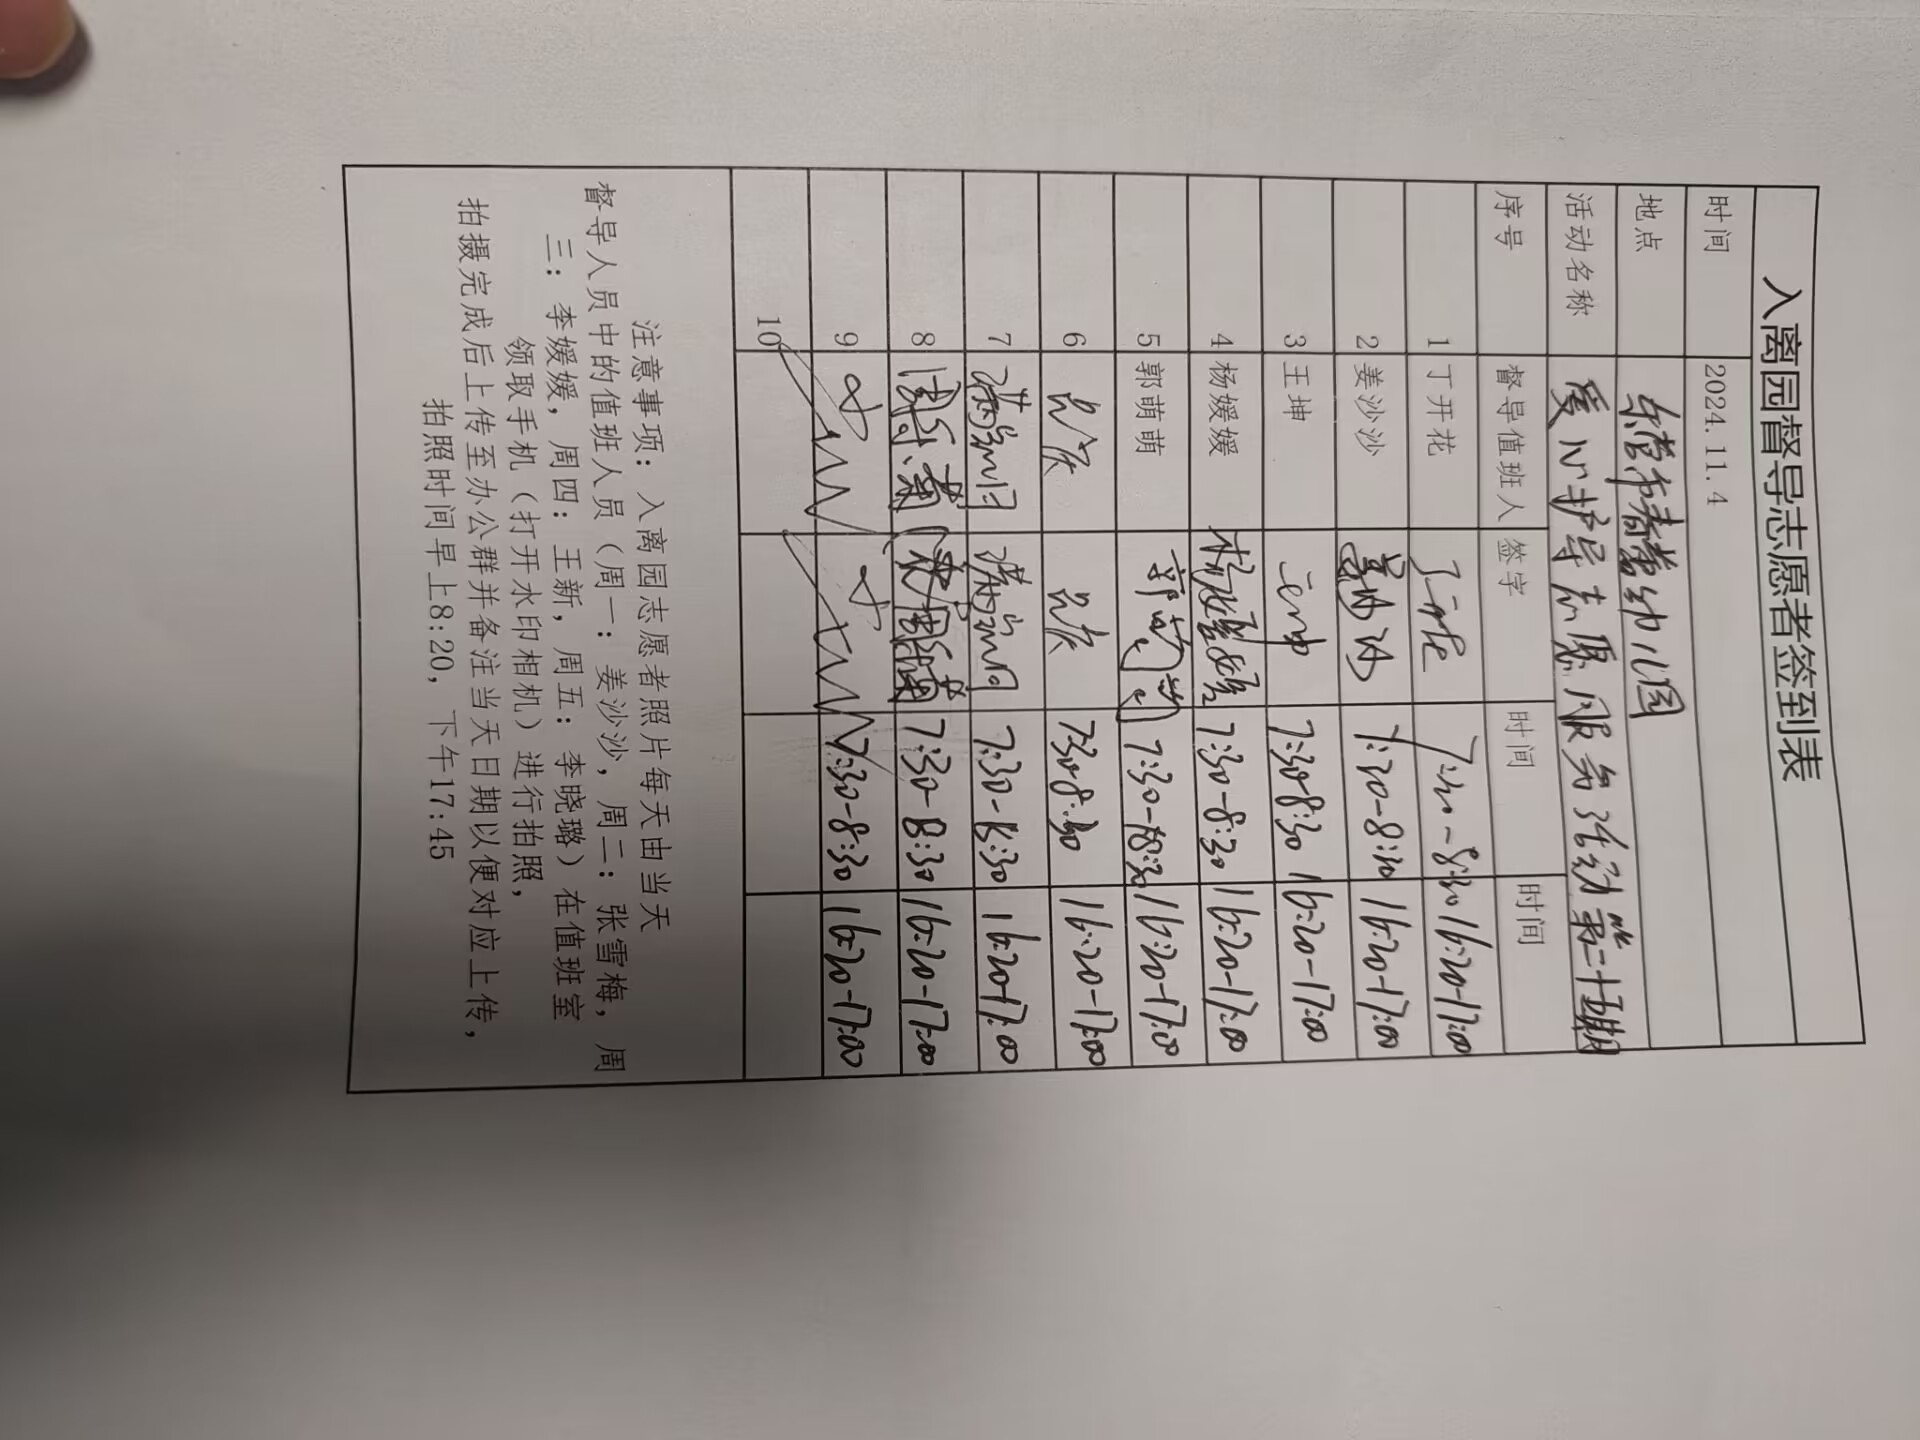 入离园督导志愿者签到表
时间 2024.11.4
地点 幼儿园
活动名称 爱心护导志愿服务活动第二十五期
序号 督导值班人 签字 时间 时间
1 丁开花 丁开花 7:30-8:30 16:20-17:00
2 姜沙沙 姜沙沙 7:30-8:30 16:20-17:00
3 王坤 王坤 7:30-8:30 16:20-17:00
4 杨媛媛 杨媛媛 7:30-8:30 16:20-17:00
5 郭萌萌 郭萌萌 7:30-8:30 16:20-17:00
6 7:30-8:30 16:20-17:00
7 7:30-8:30 16:20-17:00
8 7:30-8:30 16:20-17:00
9 7:30-8:30 16:20-17:00
10
注意事项：入离园志愿者照片每天由当天
督导人员中的值班人员（周一：姜沙沙，周二：张雪梅，周
三：李媛媛，周四：王新，周五：李晓璐）在值班室
领取手机（打开水印相机）进行拍照，
拍摄完成后上传至办公群并备注当天日期以便对应上传，
拍照时间早上8:20，下午17:45